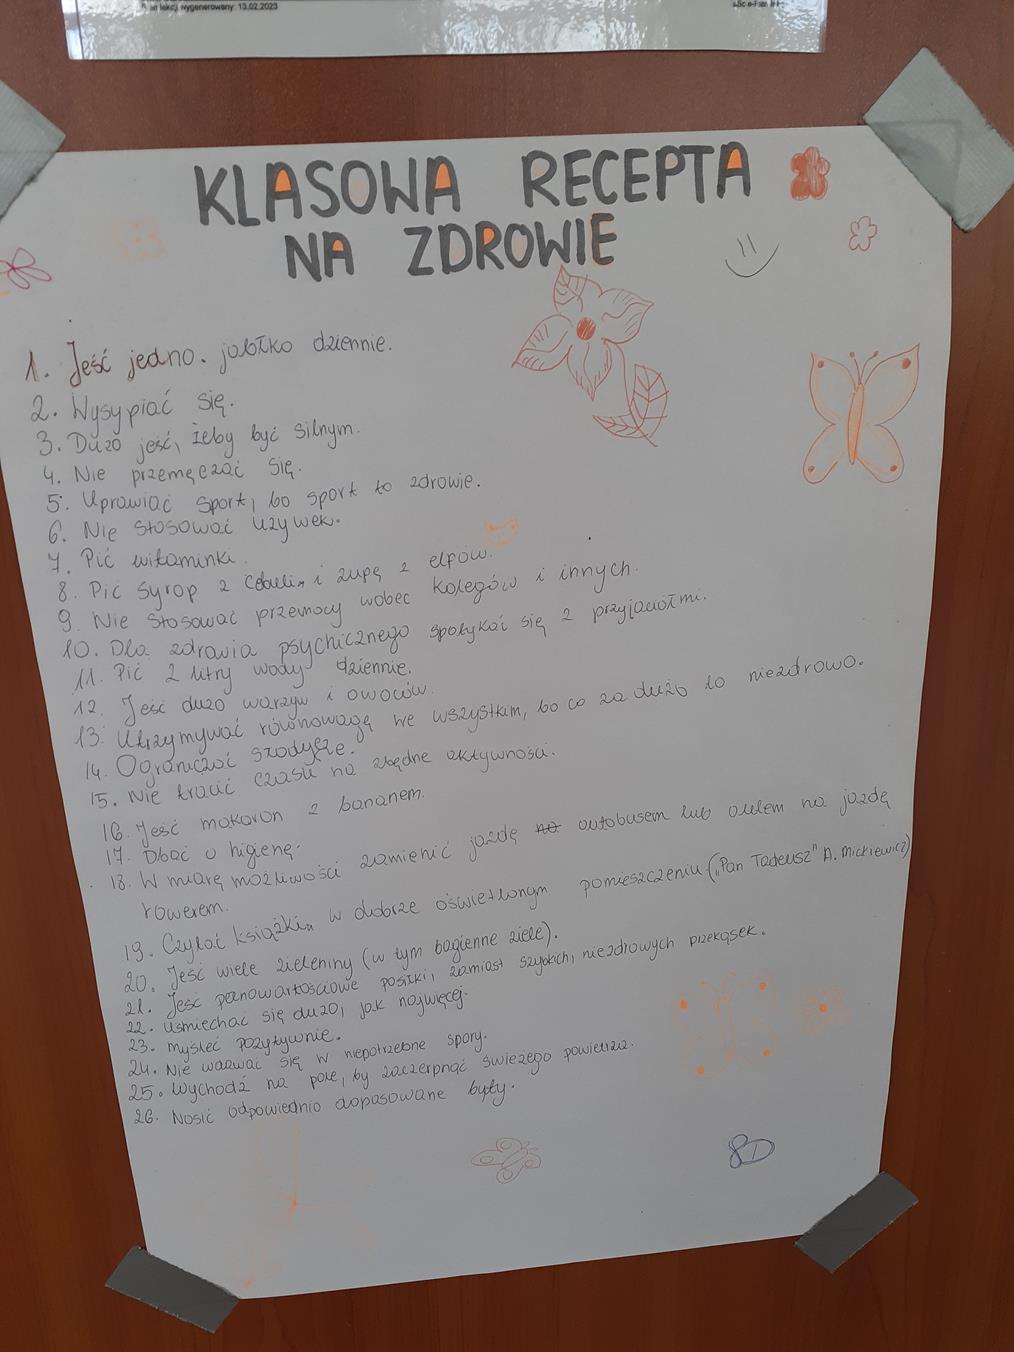 wygenerowany: 13.02.2023
KLASOWA RECEPTA
NA ZDROWIE
1. Jeść jedno. jabłko dziennie.
2. Wysypiać się.
3. Dużo jeść, żeby być silnym.
4. Nie przemęczać się.
5. Uprawiać sport, bo sport to zdrowie.
6. Nie stosować używek.
7. Pić witaminki.
8. Pić syrop z cebuli i zupę z elfów.
9. Nie stosować przemocy wobec kolegów i innych.
10. Dla zdrowia psychicznego spotykać się z przyjaciółmi.
11. Pić 2 litry wody dziennie.
12. Jeść dużo warzyw i owoców.
13. Utrzymywać równowagę we wszystkim, bo co za dużo to niezdrowo.
14. Ograniczać słodycze.
15. Nie tracić czasu na zbędne aktywności.
16. Jeść makaron z bananem.
17. Dbać o higienę.
18. W miarę możliwości zamienić jazdę na autobusem lub autem na jazdę
rowerem.
19. Czytać książki w dobrze oświetlonym pomieszczeniu („Pan Tadeusz" A. Mickiewicz)
20. Jeść wiele zieleniny (w tym bagienne ziele).
21. Jeść pełnowartościowe posiłki, zamiast szybkich, niezdrowych przekąsek.
22. Uśmiechać się dużo, jak najwięcej.
23. Myśleć pozytywnie.
24. Nie wdawać się w niepotrzebne spory.
25. Wychodź na pole, by zaczerpnąć świeżego powietrza.
26. Nosić odpowiednio dopasowane buty.
8D